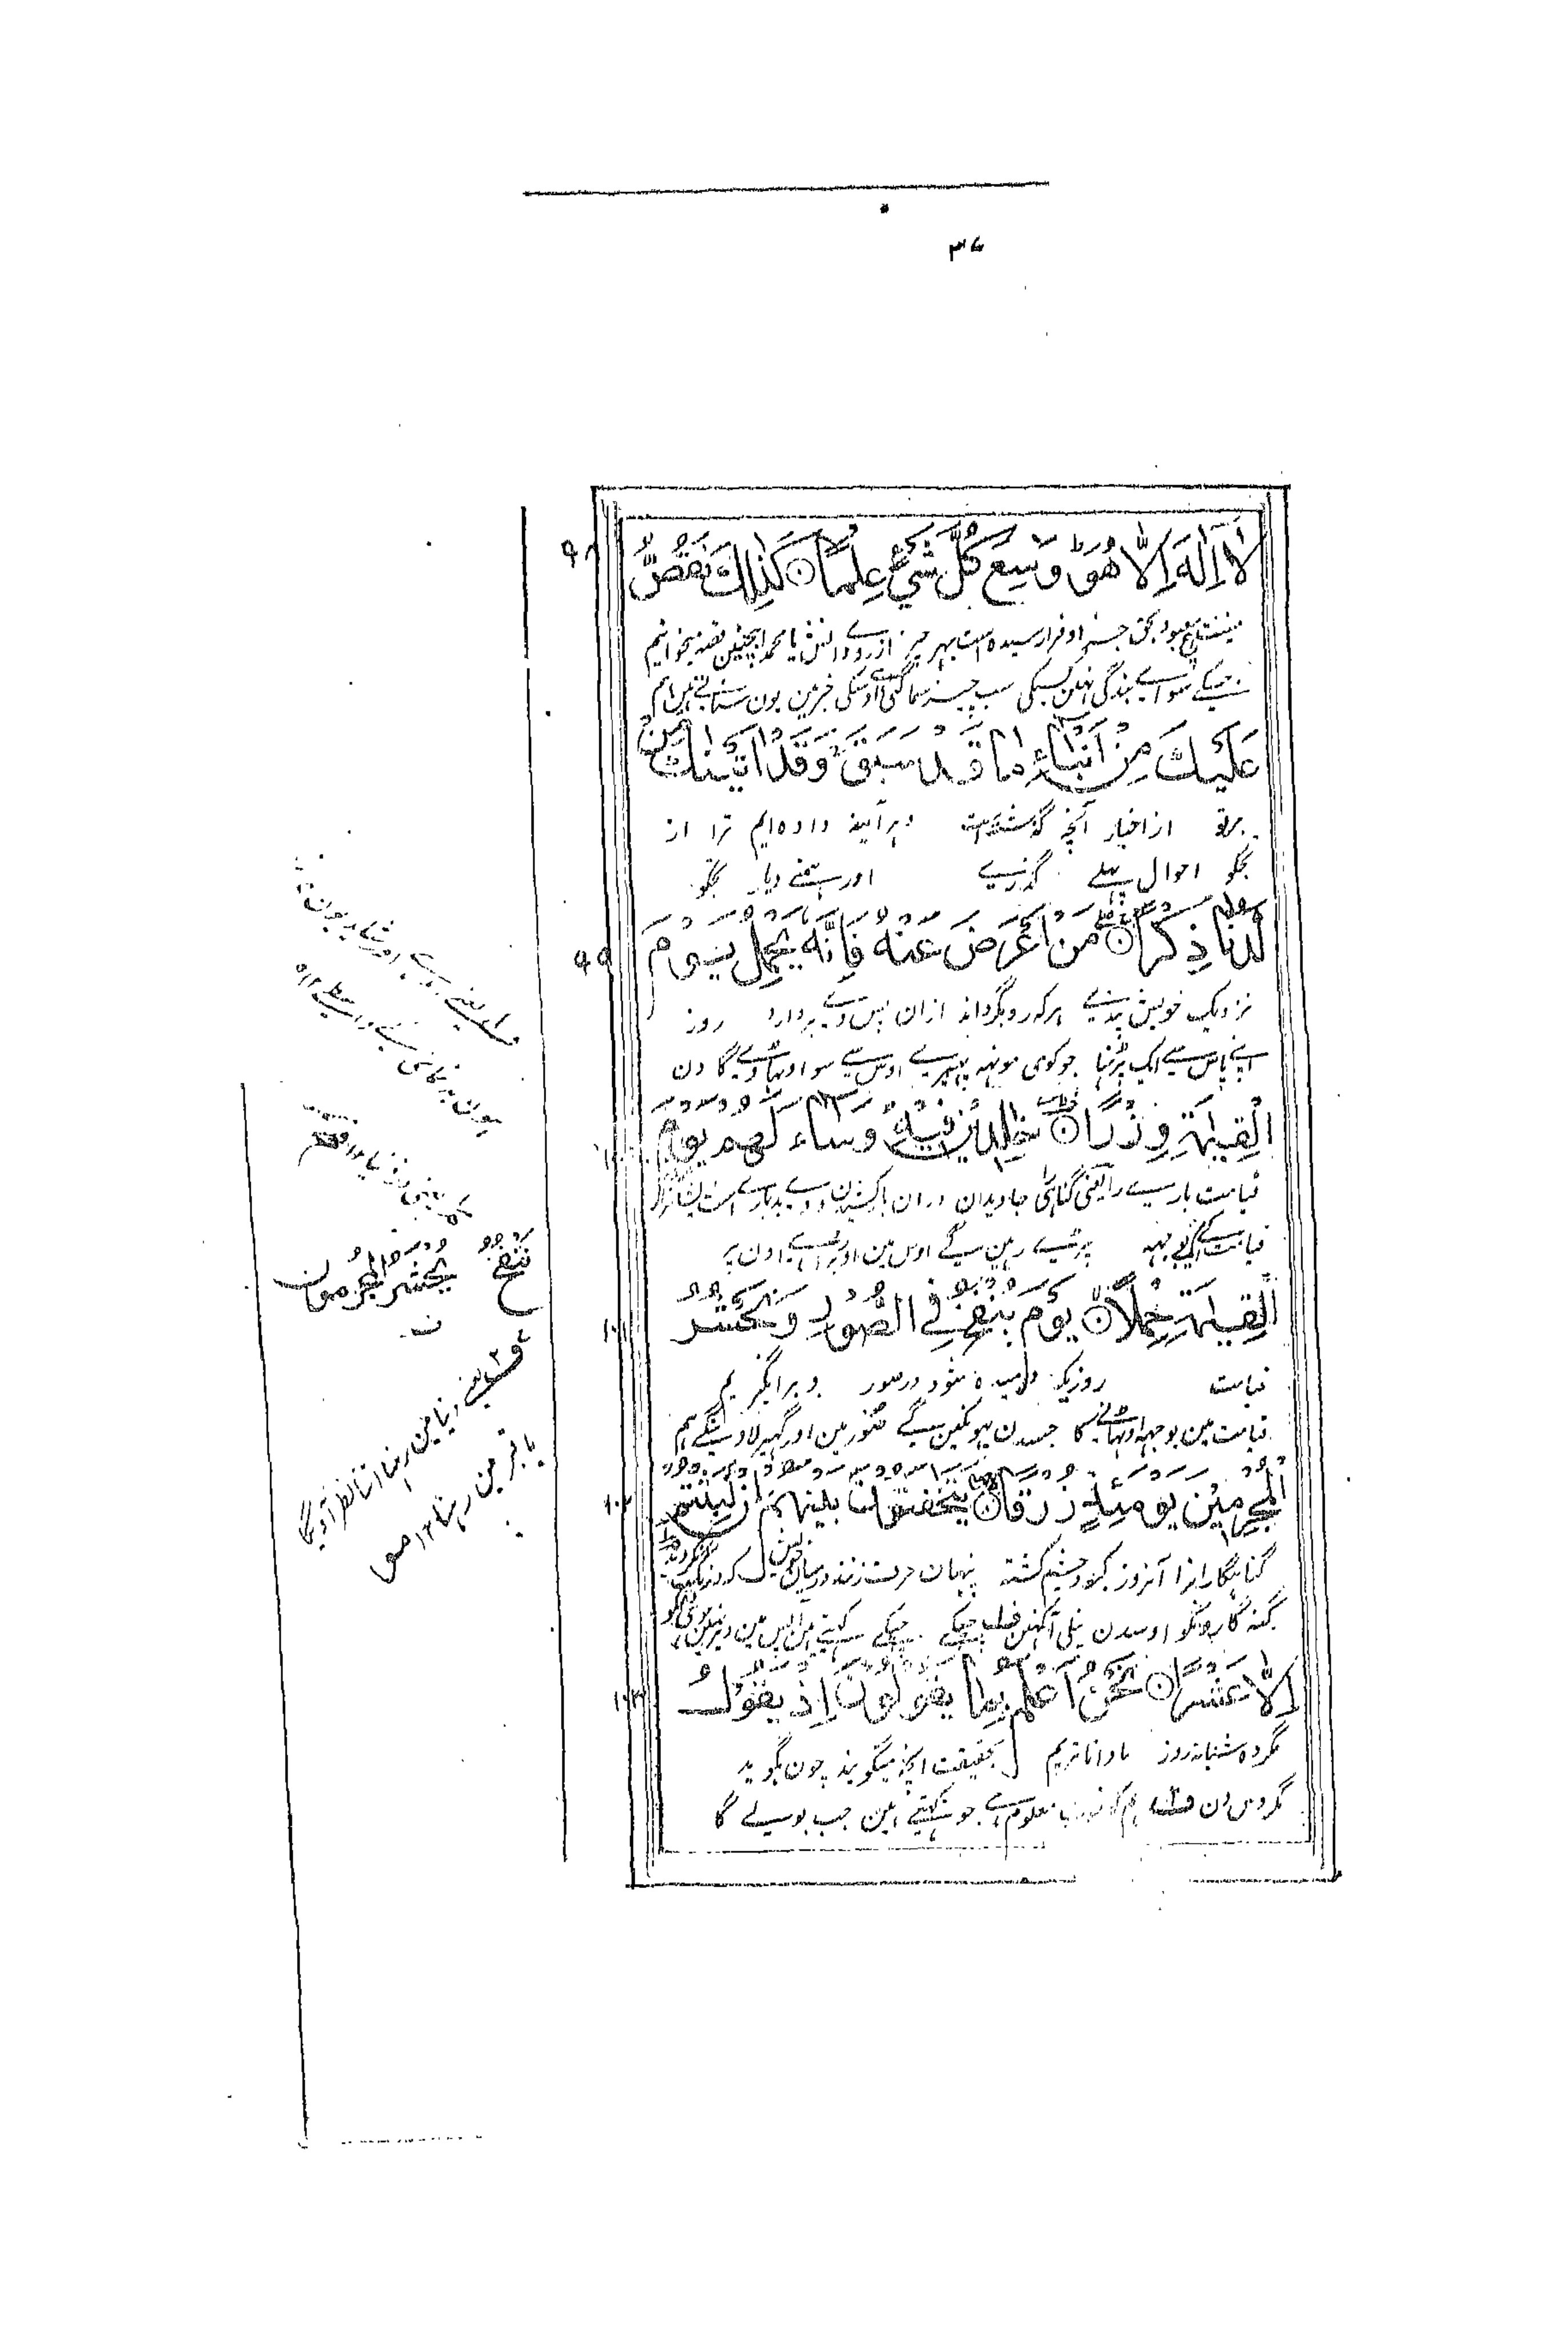 ۳۷
لَا إِلٰهَ إِلَّا هُوَ وَسِعَ كُلَّ شَيْءٍ عِلْمًا ۝ كَذٰلِكَ نَقُصُّ
۹۸
نیست معبود بحق جز او فرارسیده است بهر چیز از روے دانش یا محمد اینچنین قصه بخوانیم
جسکے سواے بندگی نہین کسیکی سب چیز سما گئی اوسکی خبر مین یون سناتے ہین ہم
عَلَيْكَ مِنْ أَنْبَاءِ مَا قَدْ سَبَقَ وَقَدْ آتَيْنٰكَ مِنْ
برتو از اخبار آنچه گذشته است و ہرآینه داده ایم ترا از
تجکو احوال پہلے گذریسے اور ہمنے دیا تجکو
لَدُنَّا ذِكْرًا ۝ مَنْ أَعْرَضَ عَنْهُ فَإِنَّهُ يَحْمِلُ يَوْمَ
۹۹
نزدیک خویش پندیسے ہرکه روبگرداند ازان پس وے بردارد روز
اپنے پاس سے ایک پڑہنا جو کوی مونہہ پہیریے اوس سے سو اوٹہاویگا دن
الْقِيٰمَةِ وِزْرًا ۝ خٰلِدِيْنَ فِيْهِ وَسَاءَ لَهُمْ يَوْمَ
قیامت بارے را یعنی گناہی جاویدان دران باشند و بد بارے است
قیامت کے بوجہہ پڑے رہین گے اوس مین اور برا ہے اون پر
الْقِيٰمَةِ حِمْلًا ۝ يَوْمَ يُنْفَخُ فِي الصُّوْرِ وَنَحْشُرُ
۱۰۱
قیامت روزیکه دمیده شود در صور و برانگیزیم
قیامت مین بوجہہ اوٹہانے کا جسدن پہونکین گے صور مین اور گہیر لاوینگے ہم
الْمُجْرِمِيْنَ يَوْمَئِذٍ زُرْقًا ۝ يَتَخٰفَتُوْنَ بَيْنَهُمْ إِنْ لَبِثْتُمْ
۱۰۲
گناہگارانرا آنروز کبود چشم گشته پنہان حرف زنند درمیان خویش که درنگ نکردید
گنہگارونکو اوسدن نیلی آنکہین چپکے چپکے کہتے ہین آپس مین دیر نہین ہوئی تمکو
إِلَّا عَشْرًا ۝ نَحْنُ أَعْلَمُ بِمَا يَقُوْلُوْنَ إِذْ يَقُوْلُ
۱۰۳
مگر ده شبانه روز ما داناتریم بحقیقت آنچه میگویند چون بگوید
مگر دس دن ہم کو خوب معلوم ہے جو کہتے ہین جب بولے گا
ننفخ یحشر المجرمون
ف یعنی دنیا مین رہنا اتنا نظر آویگا
یا قبر مین رہنا ۱۲ ص